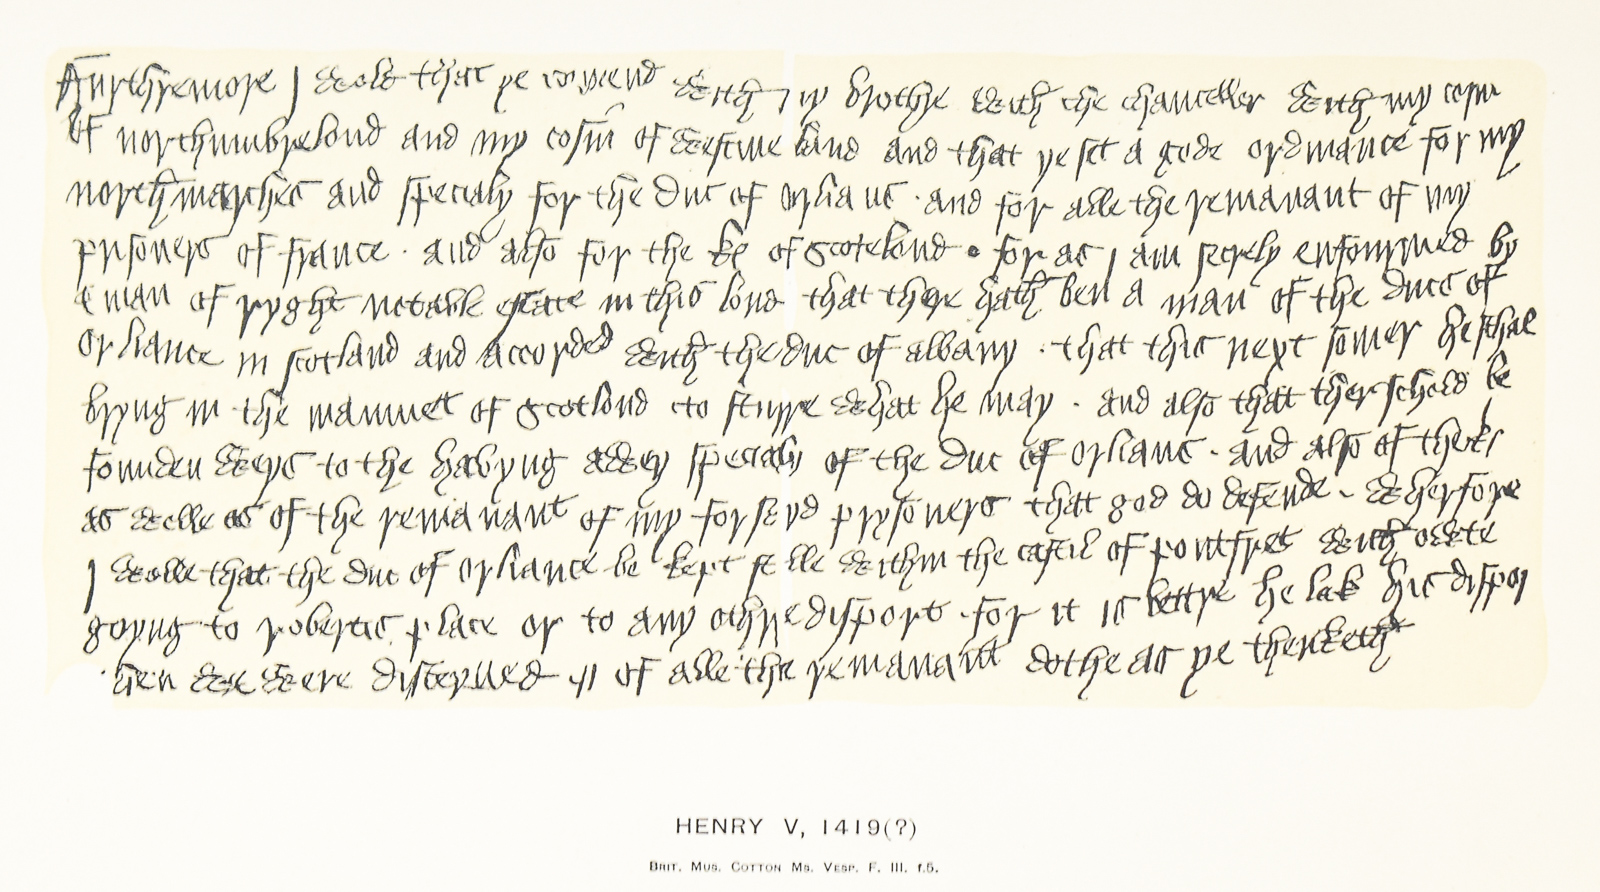 Furthremore I wold that ye comend with my brothre with the chanceller with my cosin
of northumbrelond and my cosin of westmerland and that ye set a gode ordinance for my
north marches and specialy for the duc of orlians · and for alle the remanant of my
prisoners of france · and also for the k of scotelond · for as I am secrely enfourmed by
a man of ryght notable estate in this lond that there hath ben a man of the ducs of
orliance in scotland and accorded with the duc of albany · that this next somer he schal
bryng in the mamuet of scotlond to sturre what he may · and also that ther schold be
founden weys to the havyng awey specialy of the duc of orlians · and also of the
as welle as of the remanant of my forseyd prysoners that god do defende · wherfore
I wolle that the duc of orliance be kept stille within the castil of pontfret with owte
goyng to robertis place or to any othre disport · for it is bettre he lak his disport
then we were disceyved · of alle the remanant dothe as ye thenketh
HENRY V, 1419(?)
BRIT. MUS. COTTON MS. VESP. F. III. f.5.